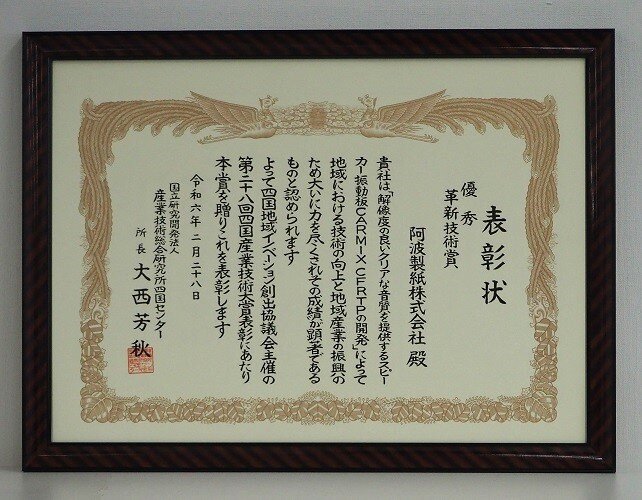 表彰状
優秀
革新技術賞
阿波製紙株式会社 殿
貴社は「解像度の良いクリアな音質を提供するスピー
カー振動板CARMIX CFRTPの開発」によって
地域における技術の向上と地域産業の振興の
ため大いに力を尽くされその成績が顕著である
ものと認められます
よって四国地域イノベーション創出協議会主催の
第二十八回四国産業技術大賞表彰にあたり
本賞を贈りこれを表彰します
令和六年二月二十八日
国立研究開発法人
産業技術総合研究所四国センター
所長 大西芳秋